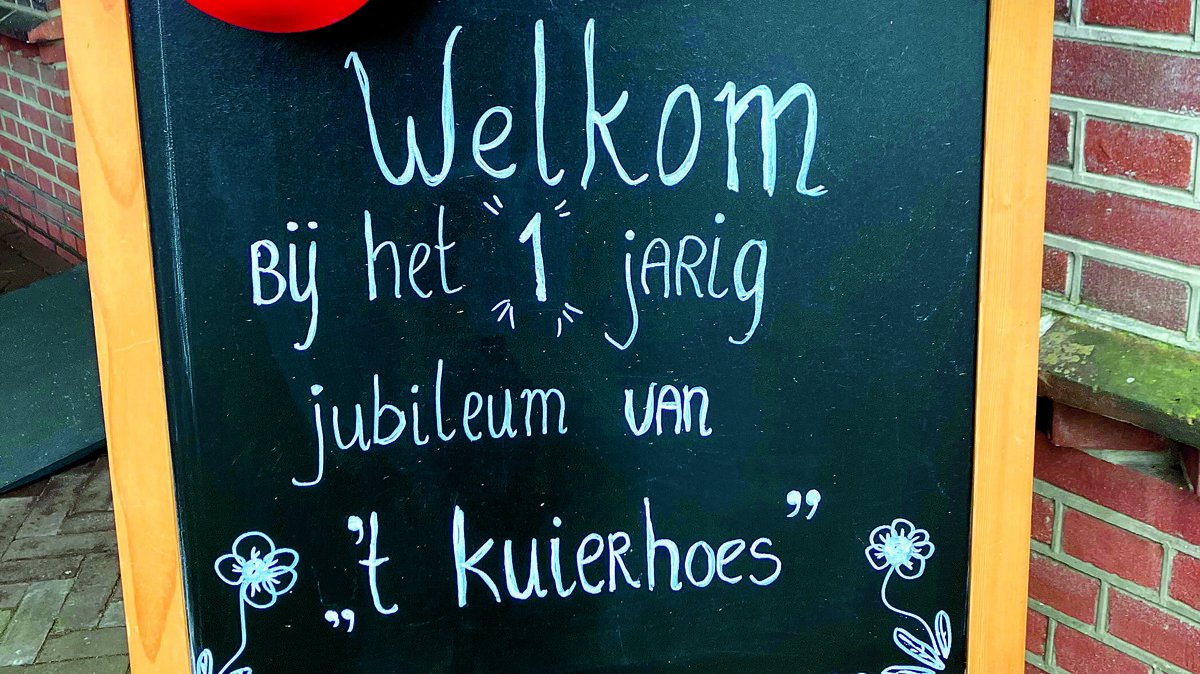 Welkom
Bij het 1 jarig
jubileum van
„'t kuierhoes”